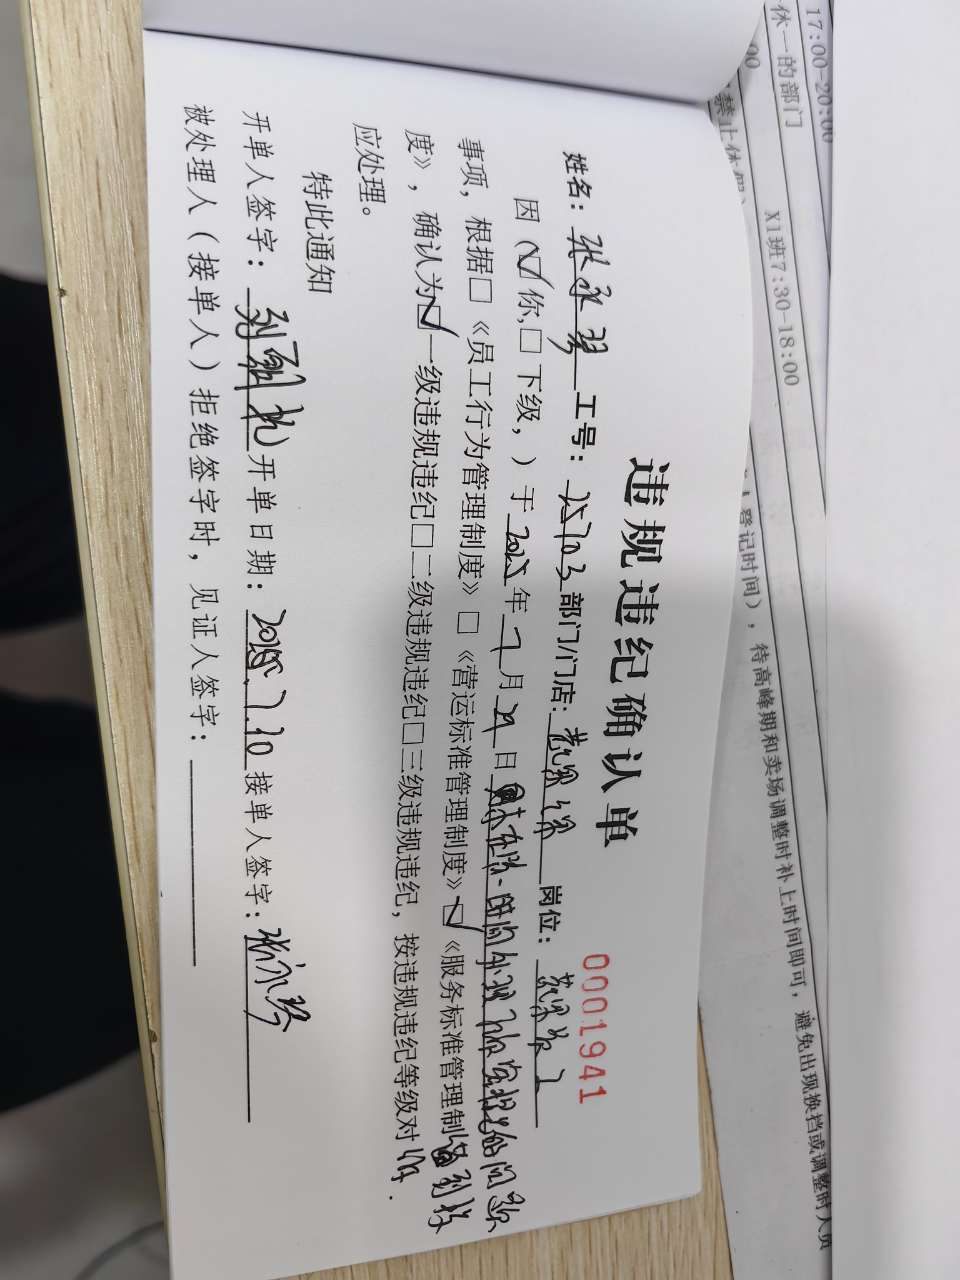 违规违纪确认单
0001941
姓名：张永琴 工号： 部门/门店：蔬果课 岗位：蔬果员工
因（☑你,☐下级，）于2025年7月 日 未在第一时间处理 的问题
事项，根据☐《员工行为管理制度》☐《营运标准管理制度》☑《服务标准管理制
度》，确认为☑一级违规违纪☐二级违规违纪☐三级违规违纪，按违规违纪等级对
应处理。
特此通知
开单人签字： 开单日期：2025.7.30 接单人签字：张永琴
被处理人（接单人）拒绝签字时，见证人签字：
17:00-20:00
休一的部门
00
禁止休假）
X1班7:30-18:00
人登记时间），待高峰期和卖场调整时补上时间即可，避免出现换挡或调整时人员